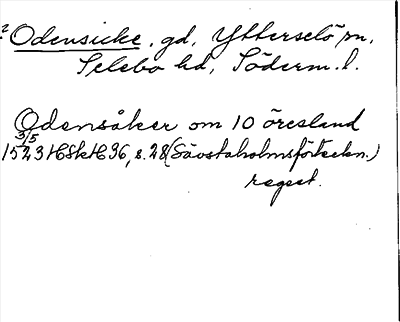 2 Odensicke, gd, Ytterselö sn,
Selebo hd, Söderm. l.
Odensåker om 10 öresland
3/5
1523 HSkH 36, s. 28 (Sävstaholmsförteckn.)
regest.